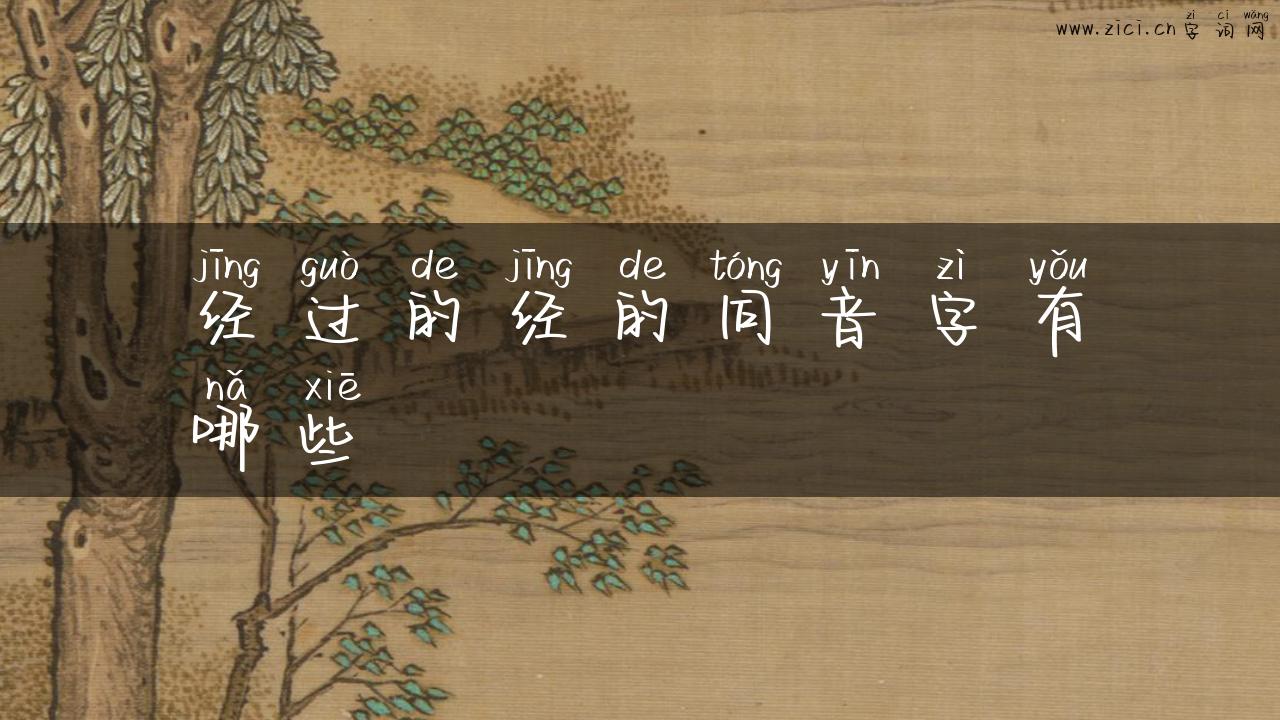 zì cí wǎng
www.zici.cn 字词网
jīng guò de jīng de tóng yīn zì yǒu
经过的经的同音字有
nǎ xiē
哪些